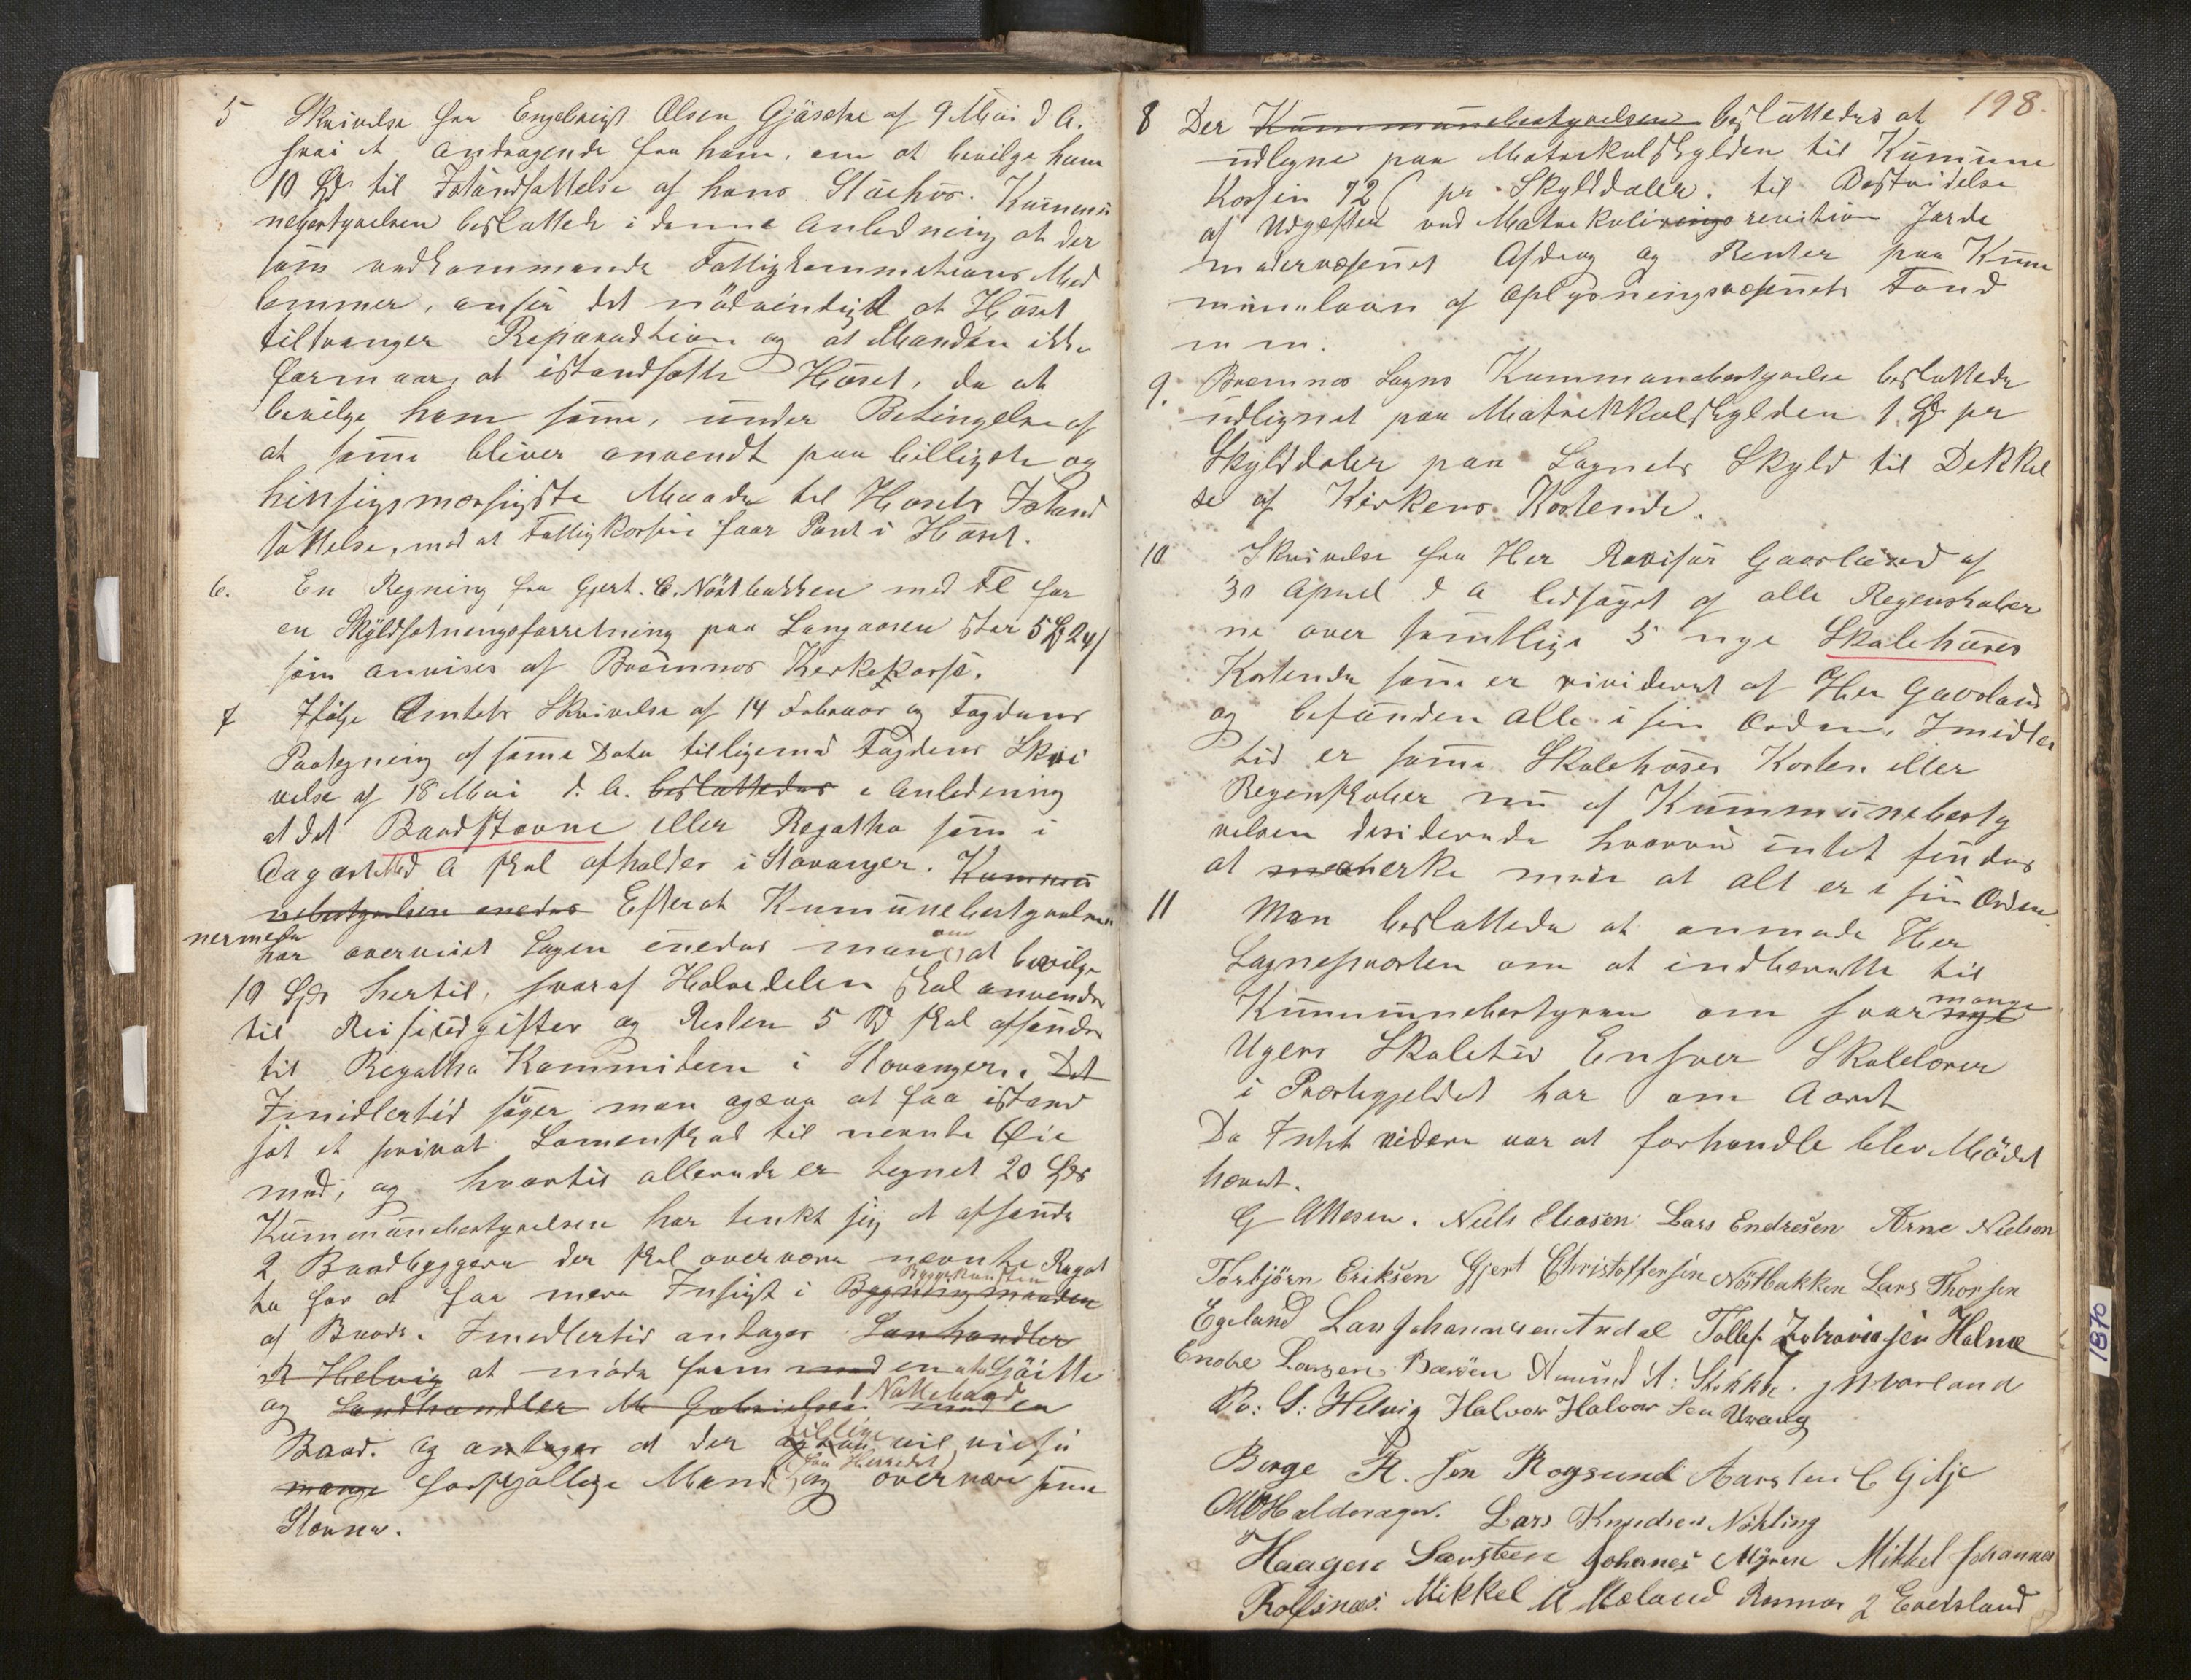 5 Skrivelse fra Engebrigt Olsen Gjøsæter af 9 Mai d A.
hvori et andragende fra ham, om at bevilge ham
10 Spd til Istandsættelse af hans Stuehus. Kommu
nebestyrelsen besluttede i denne Anledning at der
som vedkommende Fattigkommissions Med
lemmer, anser det nödvendigt at Huset
tiltrænger Reparadtion og at Manden ikke
formaar, at istandsætte Huset, da at
bevilge ham samme, under Betingelse af
at samme bliver anvendt paa billigste og
hensigsmæsigste Maade til Husets Istand
sættelse, mod at Fattigkassen faar Pant i Huset.
6. En Regning fra Gjert. C. Nötbakken med Fl for
en Skyldsætningsforretning paa Langaasen stor 5 Spd 24 s
som anvises af Bræmnes Kirkekasse.
7 Ifølge Amtets Skrivelse af 14 Februar og Fogdens
Paategning af samme Dato tilligemed Fogdens Skri
velse af 18 Mai d. A. besluttedes i Anledning
at det Baadstævne eller Regatha som i
August Md A skal afholdes i Stavanger. Kommu
nebestyrelsen enedes Efterat Kumunebestyrelsen
nermere
har overveiet Sagen enedes man om at bevilge
10 Spd hertil, hvoraf Halvedelen skal anvendes
til Reiseudgifter og Resten 5 Spd skal afsendes
til Regatha Kommiteen i Stavanger. Det
Imidlertid søger man ogsaa at faa istand
sat et privat Sammenskud til nevnte Øie
med, og hvortil allerede er tegnet 20 Spd
Kummunebestyrelsen har tenkt sig at afsende
2 Baadbyggere der skal overvære nævnte Regat
Byggekunsten
ta for at faa mere Insigt i Bygningmaaden
af Baade. Imedlertid antages Landhandler
R Helvig at møde frem med en ....Gjöitte
1 Nottebaad
og Landhandler M Gabrielsen med en
tillige
Baad. Og antages at der ogsaa vil reise
fra Herredet
mange forskjellige Mænd og overvære samme
Stevne.
198.
8 Der Kummunebestyrelsen besluttedes at
udligne paa Matrikulskylden til Kumune
Kassen 72 s pr Skylddaler. til Bestridelse
af Udgifter ved Matrikuleringsrevition Jorde
modervæsenet Afdrag og Renter paa Kum
munelaan af Oplysningsvæsenets Fond
m m.
9. Bræmnes Sogns Kummunebestyrelse besluttede
udlignet paa Matrikkulskylden 1 Spd pr
Skylddaler paa Sognets Skyld til Dekkel
se af Kirkens Kostende.
10 Skrivelse fra Her Revisør Gaasland af
30 April d A ledsaget af alle Regenskaber
ne over samtlige 5 nye Skolehuses
Kostende som er rivideret af Her Gaasland
og befunden alle i sin Orden. Imidler
tid er samme Skolehuses Kosten eller
Regenskaber nu af Kummunebesty
relsen desiderede hvorved intet findes
at bemerke men at alt er i sin Orden.
11 Man besluttede at anmode Her
Sognepræsten om at indberette til
mange
Kummunebestyren om hvor mye
Ugers Skoletid Enhver Skolelærer
i Præstegjeldet har om Aaret
Da Intet videre var at forhandle blev Mødet
hævet.
G Ottesen. Niels Eliasen Lars Endresen Arne Nielsen
Torbjörn Eriksen Gjert Christoffersen Nötbakken Lars Thorsen
Egeland Lars Johannesen Audal Tollef Zakariassen Holme
Endre Larsen Bærøen Amund A: Stokke. J M Varland
Ro: S: Helvig Halvor Halvorsen Urang
Børge R. sen Rogsund Karsten C Gilje
MO Halderager. Lars Knudsen Nökling
Haagen Larsteen Johanes Myren Mikkel Johannes
Rolfsnæs. Mikkel M Mæland Rasmus J Eredsland
1870